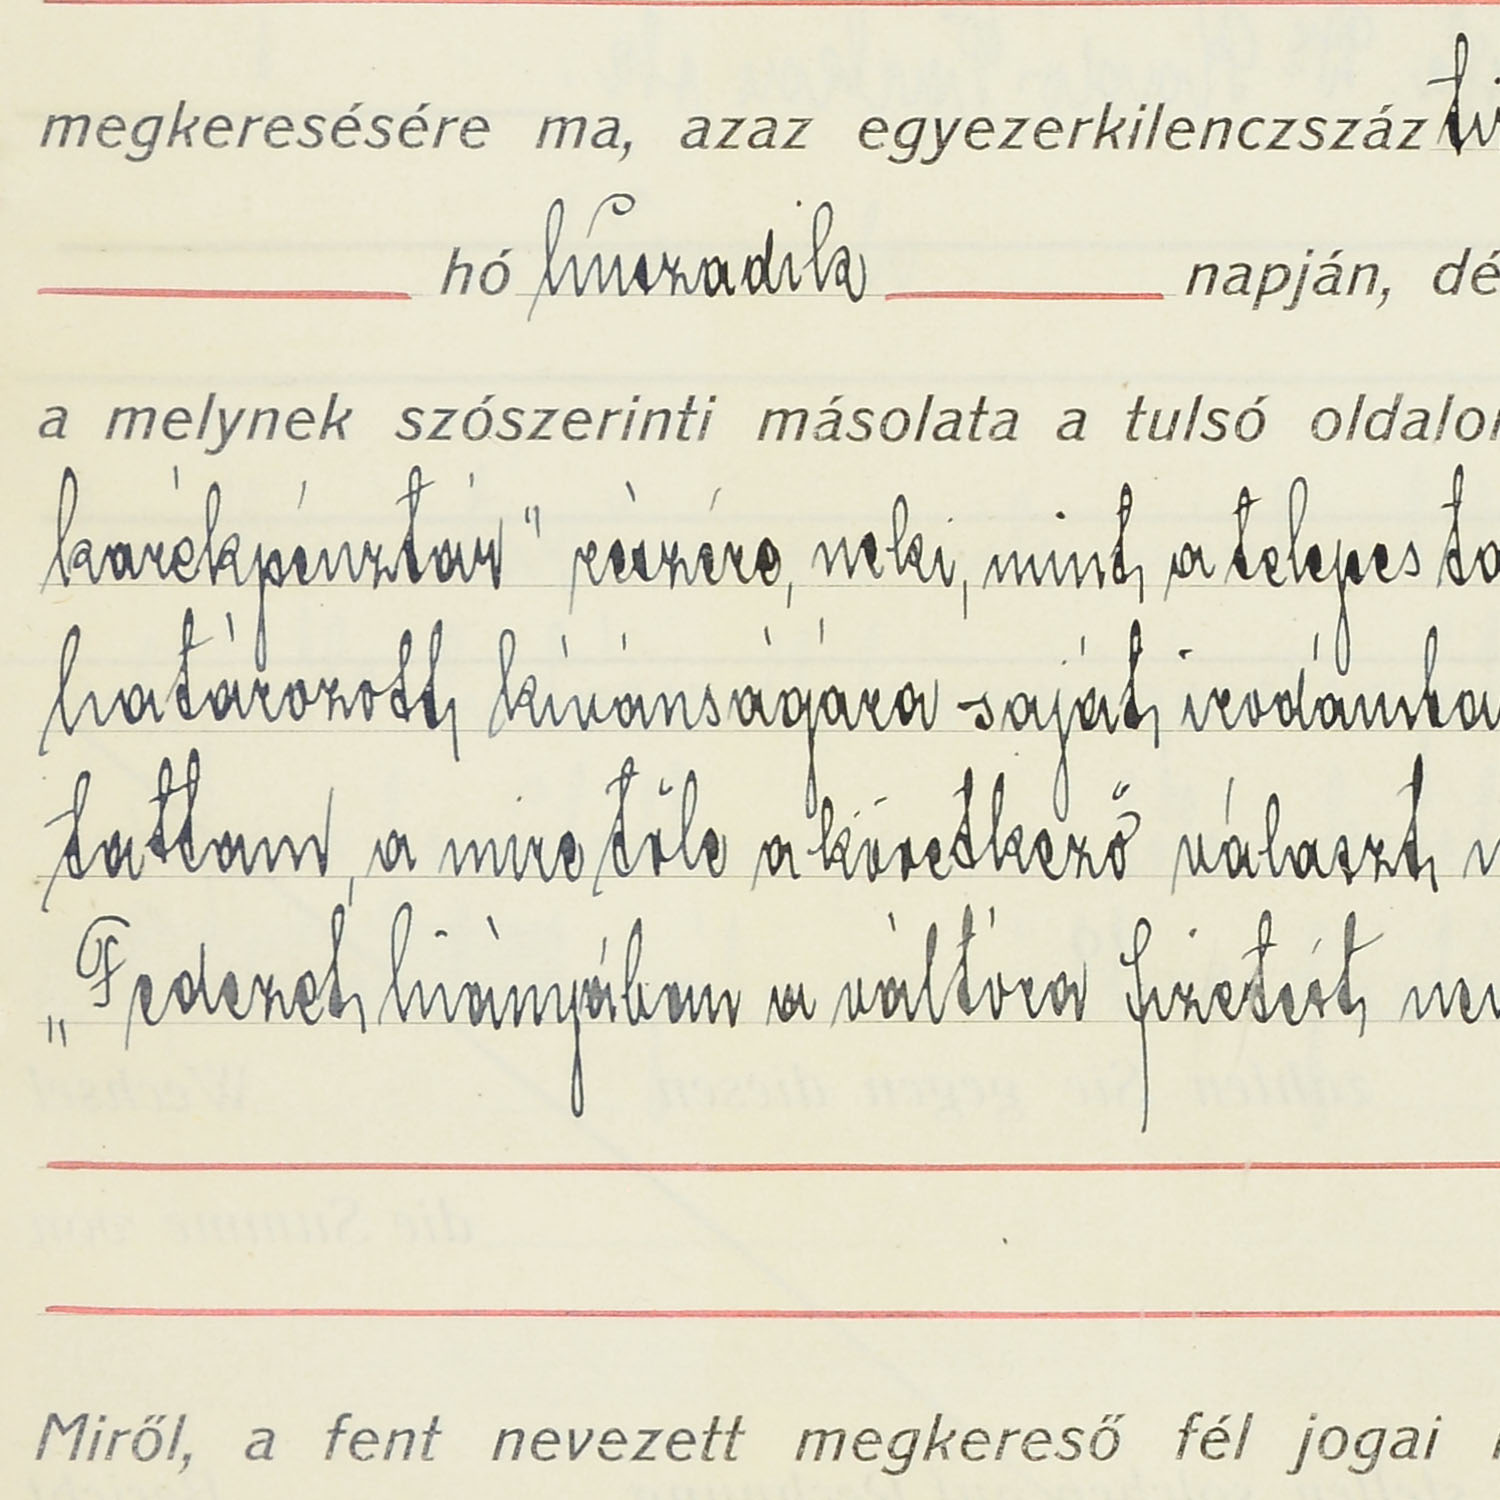 megkeresésére ma, azaz egyezerkilenczszáz
hó huszadik napján, dé
a melynek szószerinti másolata a tulsó oldalon
karékpénztár" részére, neki, mint a telepes ta
határozott kívánságára saját irodámba
tattam, a mire tőle a következő választ
„Fedezet hiányában a váltóra fizetést nem
Miről, a fent nevezett megkereső fél jogai